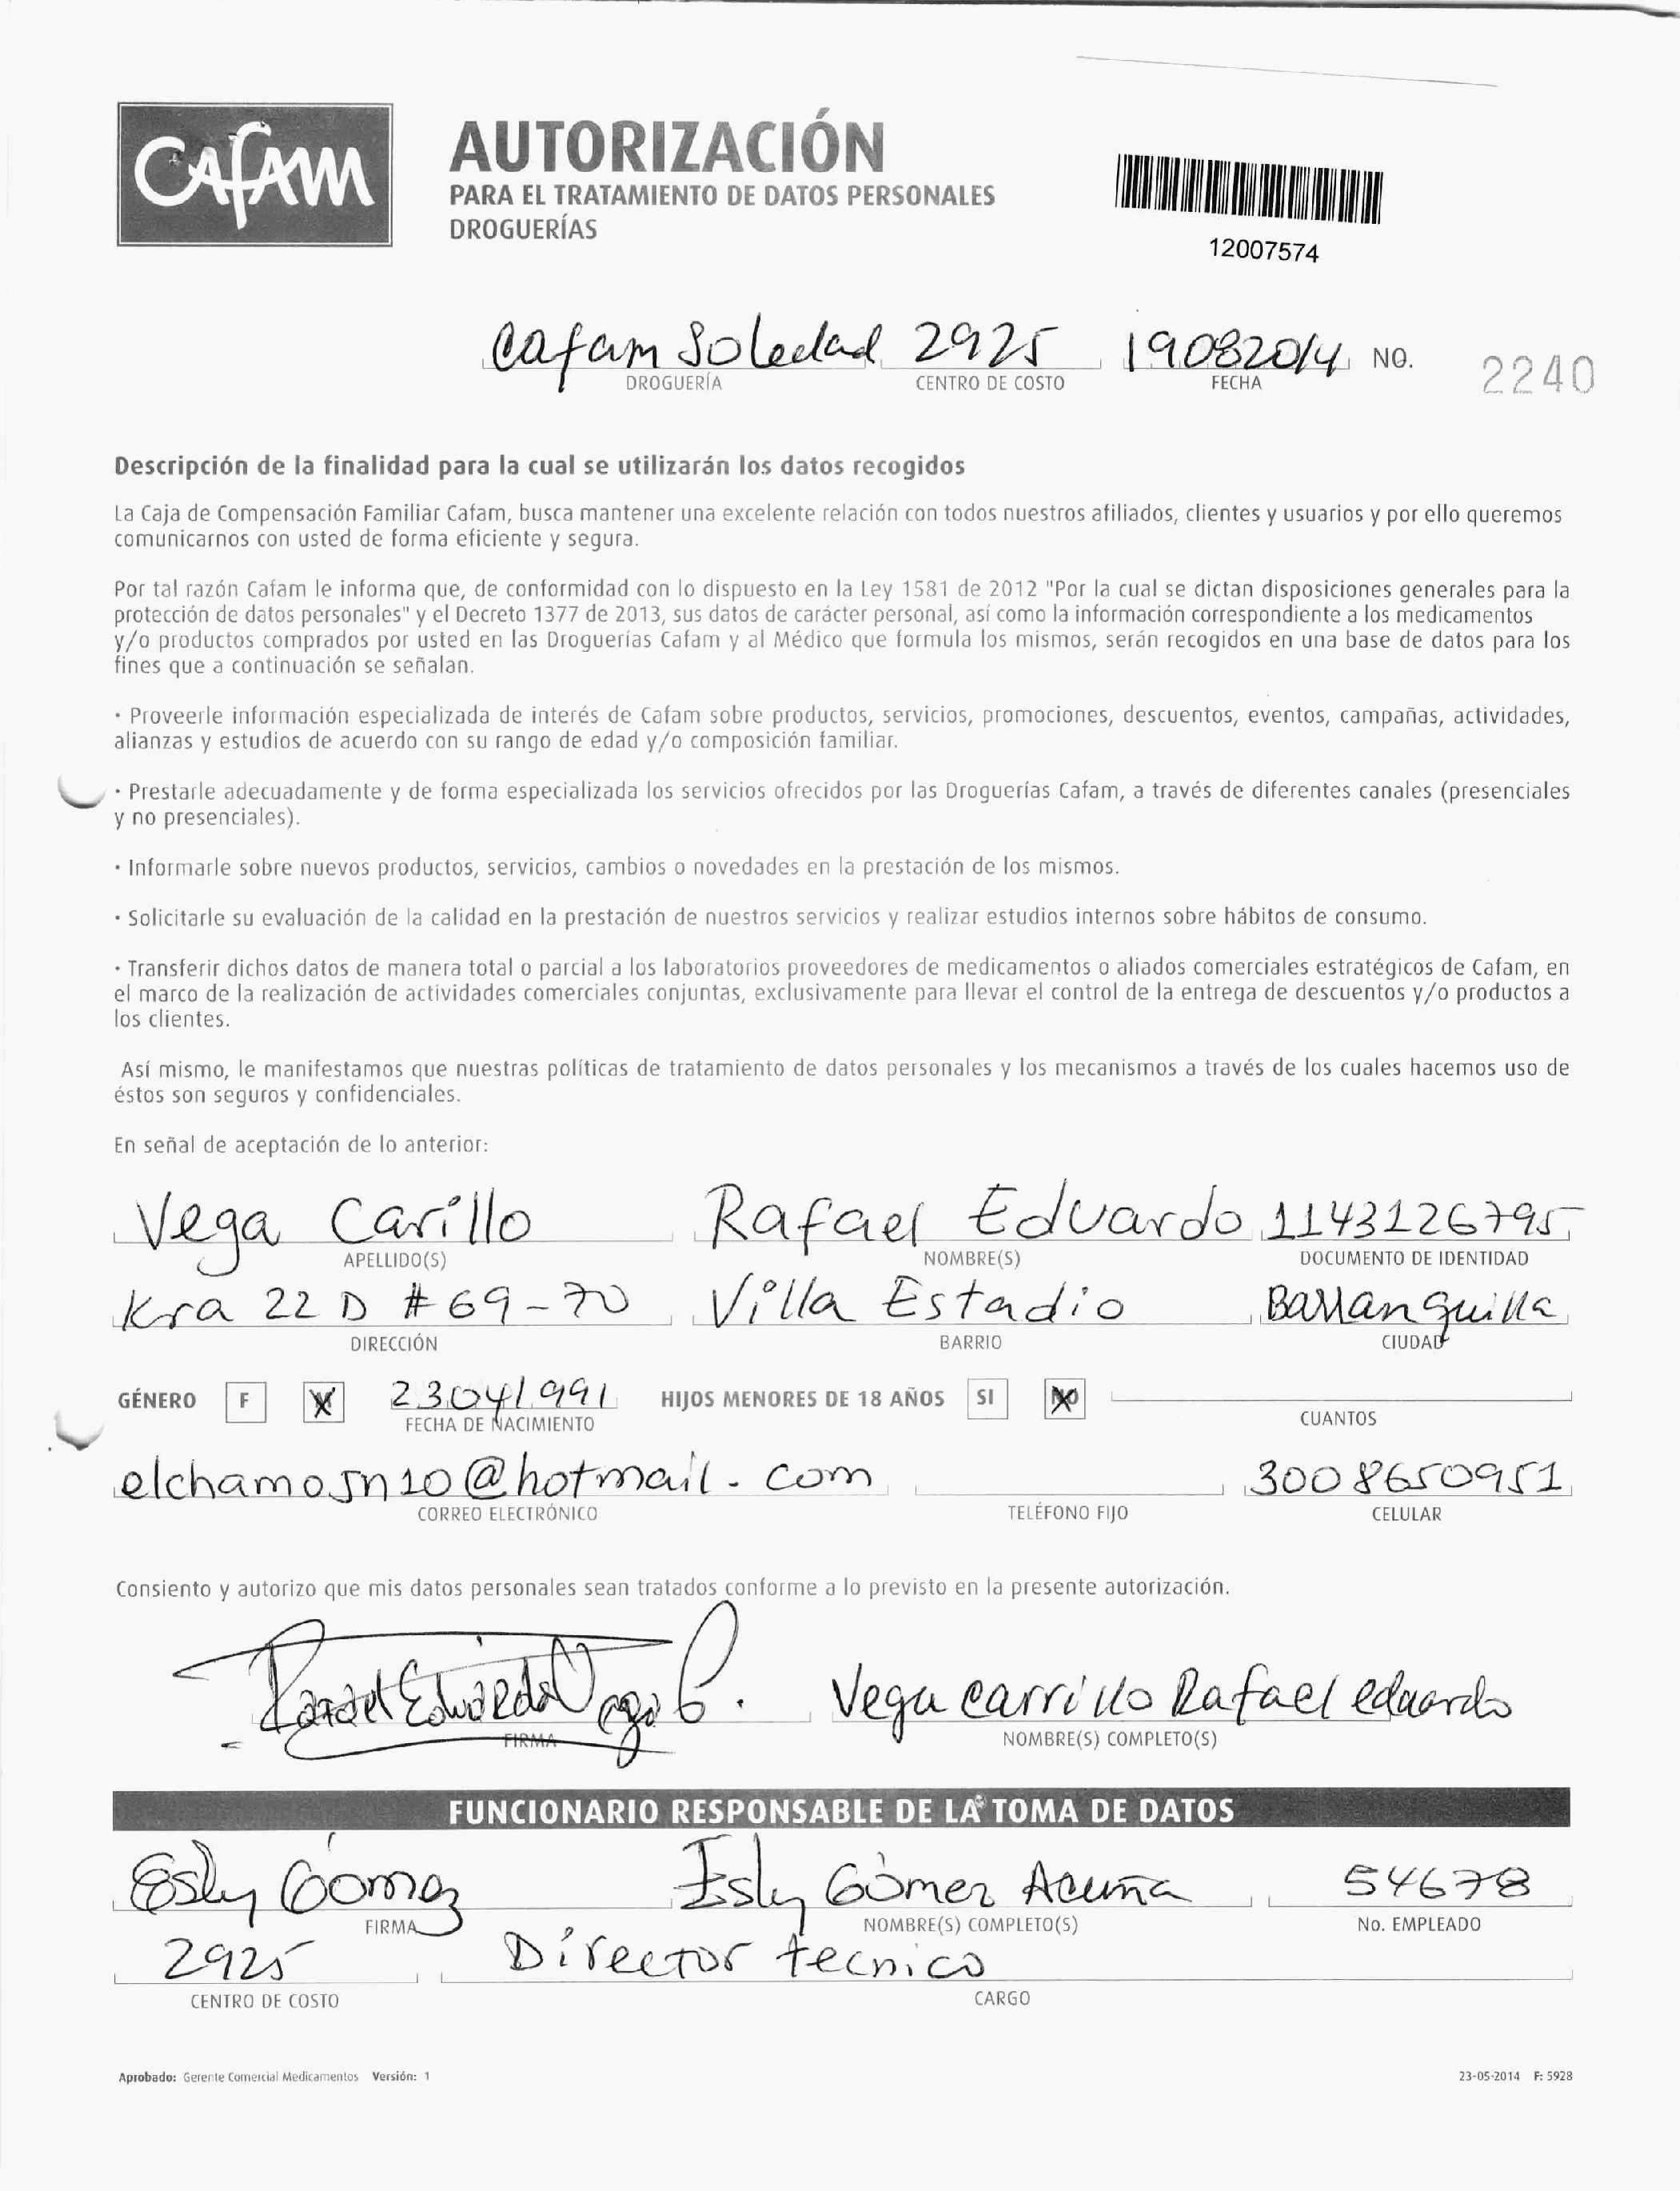 Cafam
AUTORIZACIÓN
PARA EL TRATAMIENTO DE DATOS PERSONALES
DROGUERÍAS
12007574
Cafam Soledad 2925 19082014 NO. 2240
DROGUERÍA CENTRO DE COSTO FECHA
Descripción de la finalidad para la cual se utilizarán los datos recogidos
La Caja de Compensación Familiar Cafam, busca mantener una excelente relación con todos nuestros afiliados, clientes y usuarios y por ello queremos
comunicarnos con usted de forma eficiente y segura.
Por tal razón Cafam le informa que, de conformidad con lo dispuesto en la Ley 1581 de 2012 "Por la cual se dictan disposiciones generales para la
protección de datos personales" y el Decreto 1377 de 2013, sus datos de carácter personal, así como la información correspondiente a los medicamentos
y/o productos comprados por usted en las Droguerías Cafam y al Médico que formula los mismos, serán recogidos en una base de datos para los
fines que a continuación se señalan.
· Proveerle información especializada de interés de Cafam sobre productos, servicios, promociones, descuentos, eventos, campañas, actividades,
alianzas y estudios de acuerdo con su rango de edad y/o composición familiar.
· Prestarle adecuadamente y de forma especializada los servicios ofrecidos por las Droguerías Cafam, a través de diferentes canales (presenciales
y no presenciales).
· Informarle sobre nuevos productos, servicios, cambios o novedades en la prestación de los mismos.
· Solicitarle su evaluación de la calidad en la prestación de nuestros servicios y realizar estudios internos sobre hábitos de consumo.
· Transferir dichos datos de manera total o parcial a los laboratorios proveedores de medicamentos o aliados comerciales estratégicos de Cafam, en
el marco de la realización de actividades comerciales conjuntas, exclusivamente para llevar el control de la entrega de descuentos y/o productos a
los clientes.
Así mismo, le manifestamos que nuestras políticas de tratamiento de datos personales y los mecanismos a través de los cuales hacemos uso de
éstos son seguros y confidenciales.
En señal de aceptación de lo anterior:
Vega Carillo Rafael Eduardo 1143126795
APELLIDO(S) NOMBRE(S) DOCUMENTO DE IDENTIDAD
Kra 22 D # 69-70 Villa Estadio Barranquilla
DIRECCIÓN BARRIO CIUDAD
GÉNERO F M 23041991 HIJOS MENORES DE 18 AÑOS SI NO
FECHA DE NACIMIENTO CUANTOS
elchamosn10@hotmail.com 3008650951
CORREO ELECTRÓNICO TELÉFONO FIJO CELULAR
Consiento y autorizo que mis datos personales sean tratados conforme a lo previsto en la presente autorización.
Rafael Eduardo Vega C. Vega carrillo Rafael eduardo
FIRMA NOMBRE(S) COMPLETO(S)
FUNCIONARIO RESPONSABLE DE LA TOMA DE DATOS
Esly Gómez Esly Gómez Acuña 54678
FIRMA NOMBRE(S) COMPLETO(S) No. EMPLEADO
2925 Director tecnico
CENTRO DE COSTO CARGO
Aprobado: Gerente Comercial Medicamentos Versión: 1 23-05-2014 F: 5928